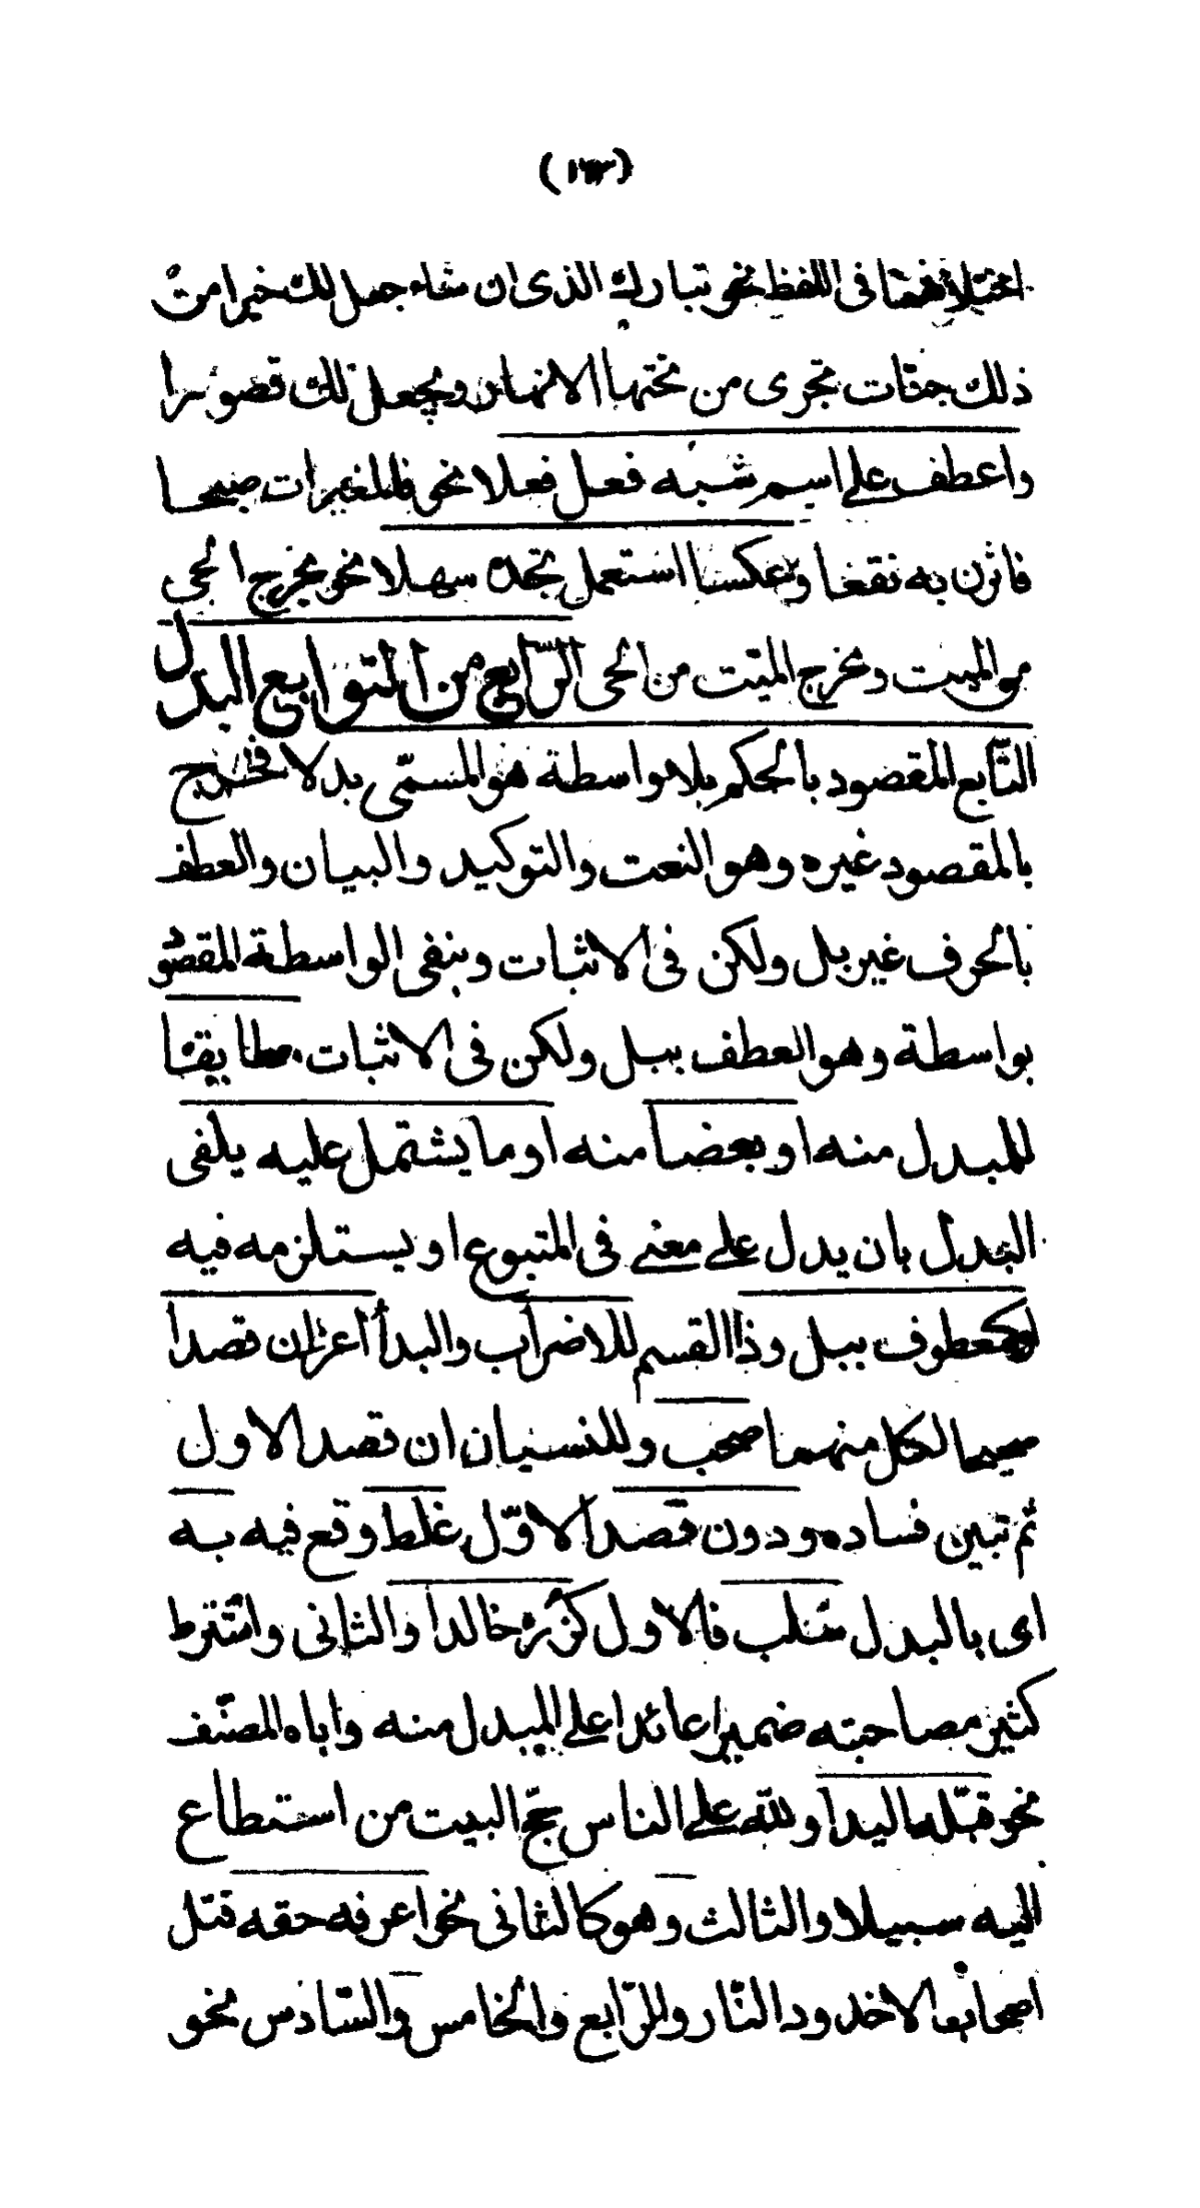 (١٦٣)
اختلافهما فى اللفظ نحو تبارك الذى ان شاء جعل لك خيرا من
ذلك جنّات تجرى من تحتها الانهار ويجعل لك قصورا
واعطف على اسم شبه فعل فعلا نحو فالمغيرات صبحا
فاثرن به نقعا وعكسا استعمل تجده سهلا نحو يخرج الحى
من الميت ومخرج الميّت من الحى الرّابع من التوابع البدل
التّابع المقصود بالحكم بلا واسطة هو المسمّى بدلا فخرج
بالمقصود غيره وهو النعت والتوكيد والبيان والعطف
بالحرف غير بل ولكن فى الاثبات وبنفى الواسطة المقصود
بواسطة وهو العطف ببل ولكن فى الاثبات مطابقا
للمبدل منه او بعضا منه او ما يشتمل عليه يلفى
البدل بان يدل على معنى فى المتبوع او يستلزمه فيه
او كمعطوف ببل وذا القسم للاضراب والبدأ اعز ان قصدا
صحيحا لكل منهما صحب وللنسيان ان قصد الاول
ثم تبين فساده ودون قصد الاوّل غلط وقع فيه به
اى بالبدل سلب فالاول كزره خالدا والثانى واشترط
كثير مصاحبته ضميرا عائدا على المبدل منه واباه المصنّف
نحو قبّله اليدا ولله على الناس حجّ البيت من استطاع
اليه سبيلا والثالث وهو كالثانى نحو اعرفه حقه قتل
اصحاب الاخدود النّار والرّابع والخامس والسّادس نحو